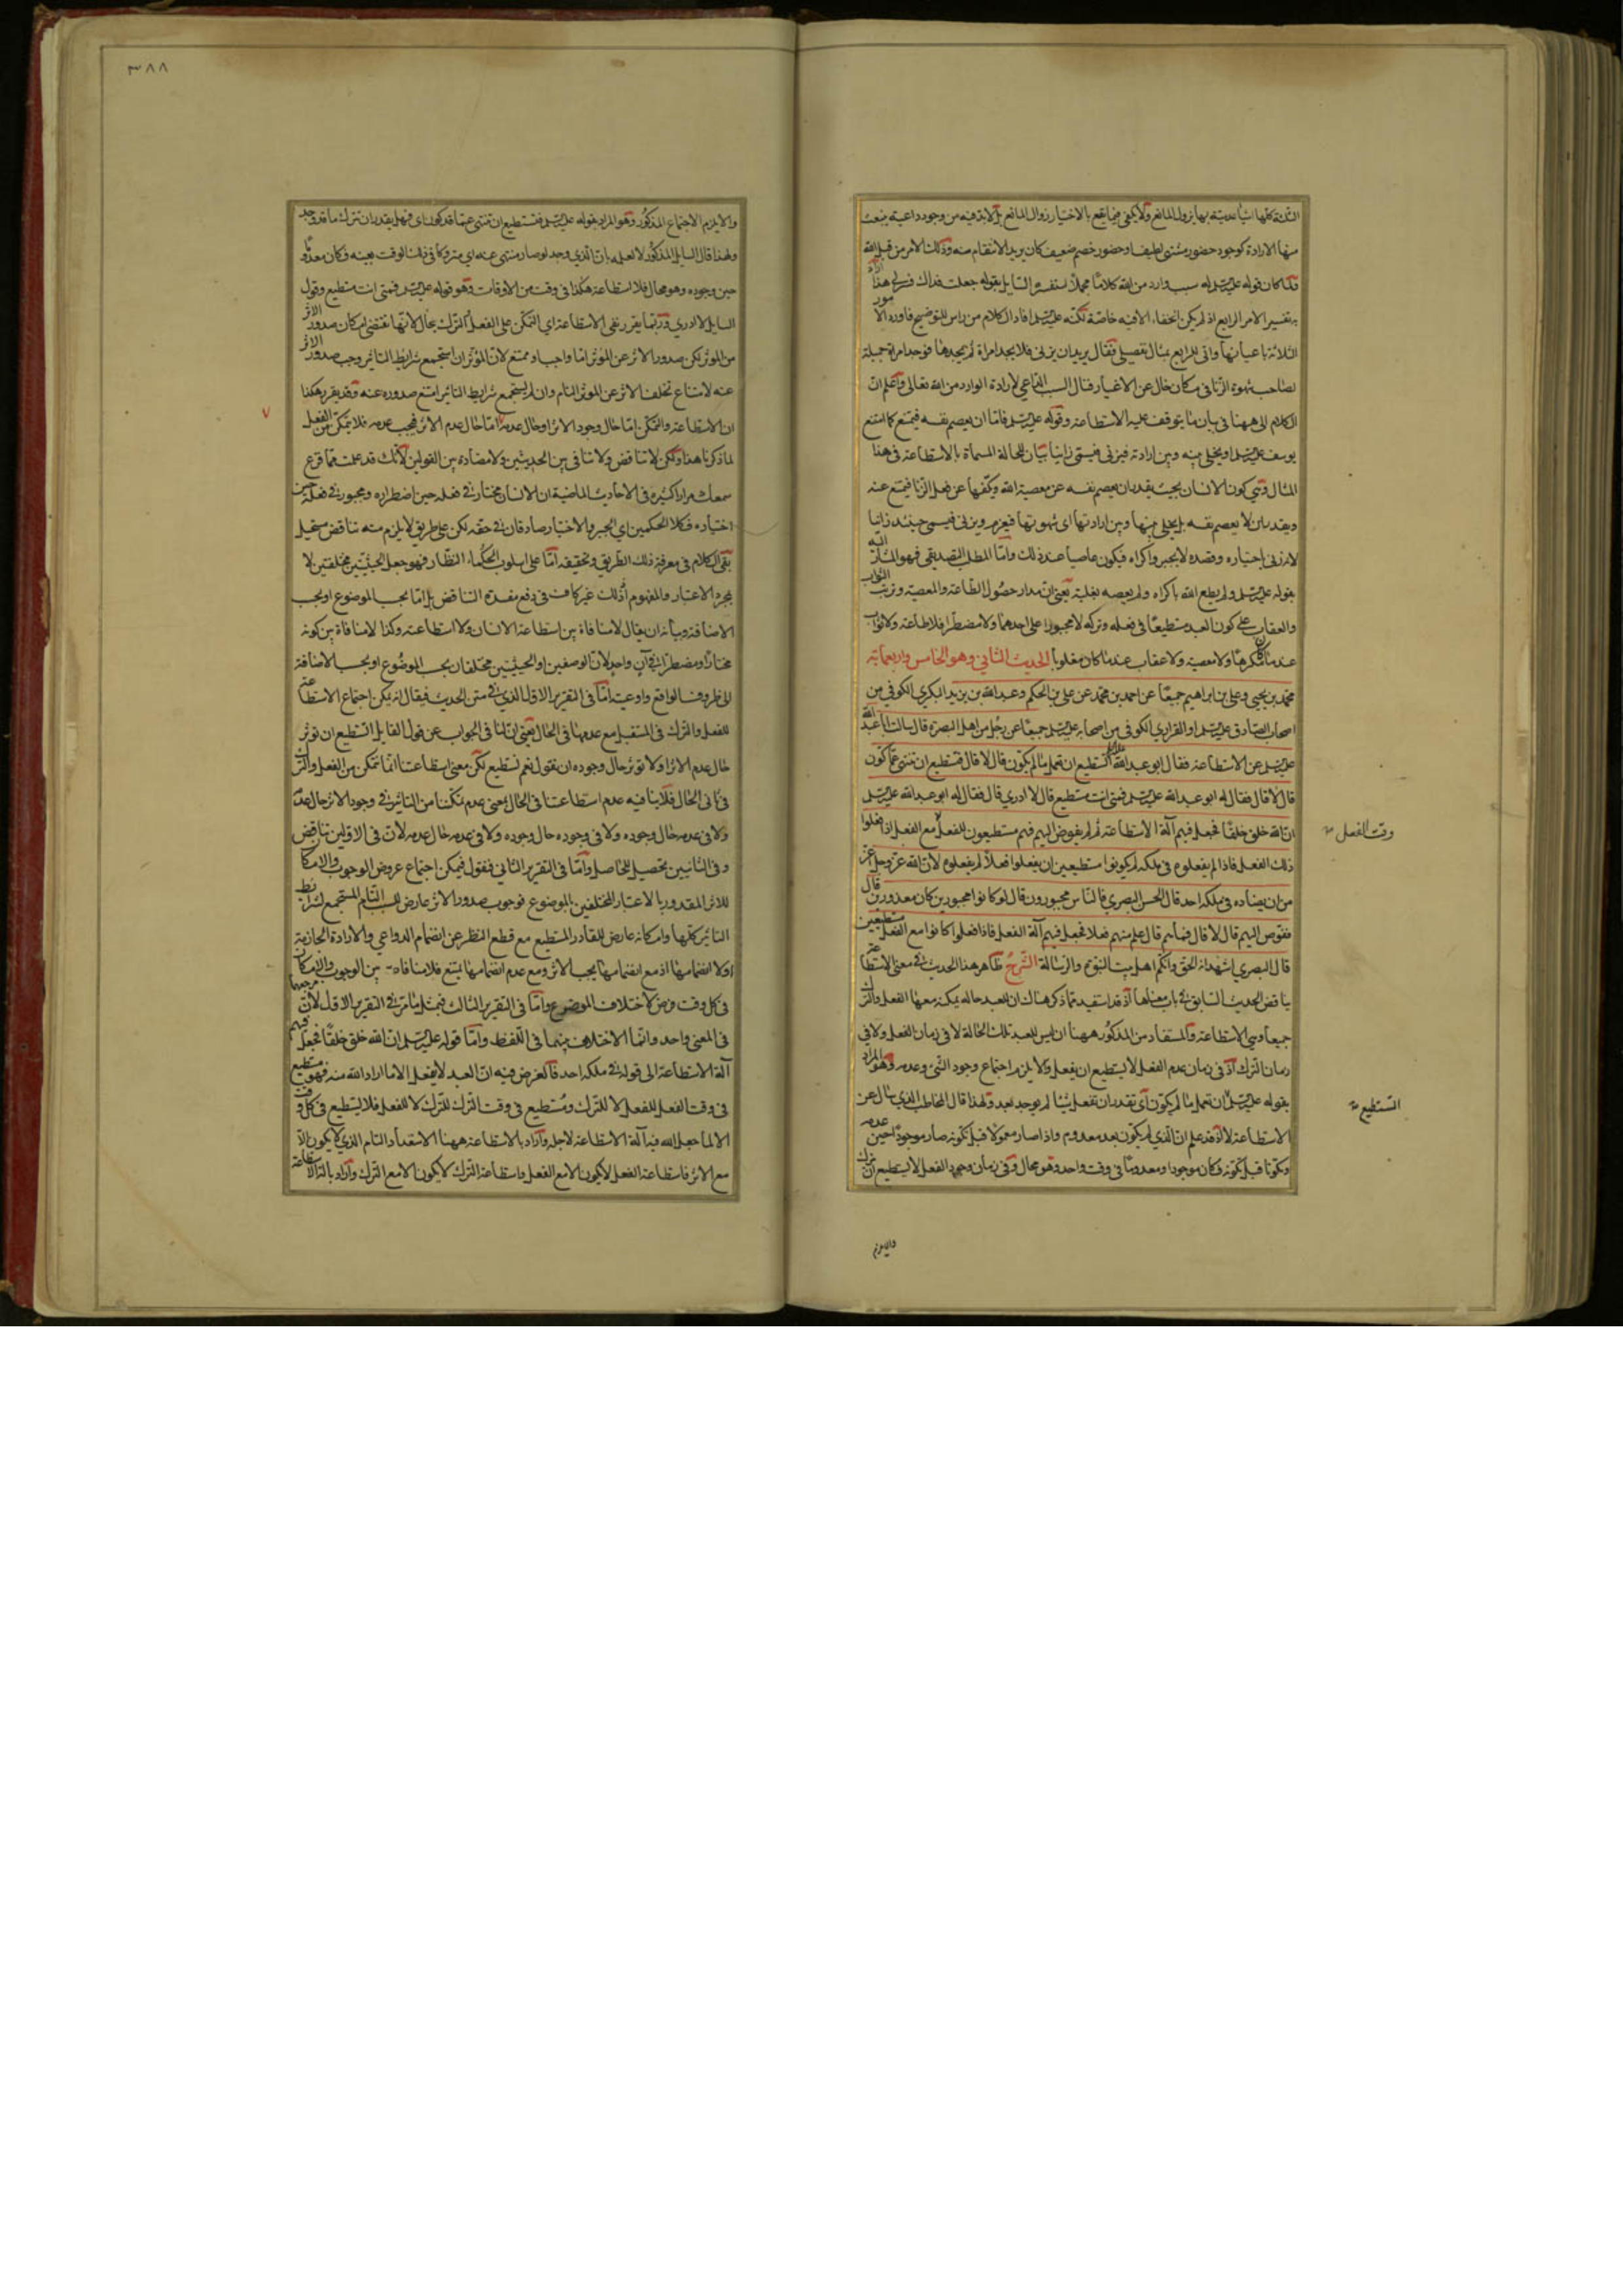 الثلثة كلها اشياء بدنية بها يزول المانع ولا يكفى فيما يقع بالاختيار زوال المانع بل لا بد فيه من وجود داعية ينبعث
منها الارادة كوجود حضور مشتهى لطيف او حضور خصم ضعيف كان يريد الانتقام منه وذلك الامر من قبل الله
فلما كان قوله عليه السلم له سبب وارد من الله كلاما مجملا استفسر السايل بقوله جعلت فداك فسر لى هذا
تفسير الامر الرابع اذ لم يكن الخفاء الا فيه خاصة لكنه عليه السلم افاد الكلام من راس للتوضيح فاورد الامور
الثلاثة باعيانها واتى للرابع بمثال تفصيلى فقال يريد ان يزنى فلا يجد امراة ثم يجدها فوجد امراة جميلة
لصاحب شهوة الزنا فى مكان خال عن الاغيار مثال السبب الداعى لارادة الوارد من الله تعالى واعلم ان
الكلام الى ههنا فى بيان ما يتوقف عليه الاستطاعة وقوله عليه السلم فاما ان يعصم نفسه فيمتنع كما امتنع
يوسف عليه السلم او يخلى بينه وبين ارادته فيزنى فيسمى زانيا بيان للحالة المسماة بالاستطاعة فى هذا
المثال وهى كون الانسان بحيث يقدر ان يعصم نفسه عن معصية الله وكفها عن فعل الزنا فيمتنع عنه
ويقدر بان لا يعصم نفسه بل يخلى بينها وبين ارادتها اى شهوتها فيعزم ويزنى فيسمى حينئذ زانيا
لانه زنى باختياره وقصده لا بجبر واكراه فيكون عاصيا عند ذلك واما المطلب التصديقى فهو المشار اليه
بقوله عليه السلم ولم يطع الله باكراه ولم يعصه بغلبة يعنى ان مدار حصول الطاعة والمعصية وترتب الثواب
والعقاب على كون العبد مستطيعا فى فعله وتركه لا مجبورا على احدهما ولا مضطرا فلا طاعة ولا ثواب
عند ما كان مكرها ولا معصية ولا عقاب عند ما كان مغلوبا الحديث الثانى وهو الخامس واربعمائة
محمد بن يحيى وعلى بن ابراهيم جميعا عن احمد بن محمد عن على بن الحكم وعبد الله بن يزيد البكرى الكوفى من
اصحاب الصادق عليه السلم او الفزارى الكوفى من اصحابه عليه السلم جميعا عن رجل من اهل البصرة قال سالت ابا عبد الله
عليه السلم عن الاستطاعة فقال ابو عبد الله عليه السلم اتستطيع ان تعمل ما لم يكون قال لا قال فتستطيع ان تنتهى عما كون
قال لا قال فقال له ابو عبد الله عليه السلم فمتى انت مستطيع قال لا ادرى قال فقال له ابو عبد الله عليه السلم
ان الله خلق خلقا فجعل فيهم آلة الاستطاعة ثم لم يفوض اليهم فهم مستطيعون للفعل مع الفعل اذا فعلوا
وقت الفعل
ذلك الفعل فاذا لم يفعلوه فى ملكه لم يكونوا مستطيعين ان يفعلوا فعلا لم يفعلوه لان الله عز وجل اعز
من ان يضاده فى ملكه احد قال الحسن البصرى فالناس مجبورون قال لو كانوا مجبورين كان معذورين قال
ففوض اليهم قال لا قال فما هم قال علم منهم فعلا فجعل فيهم آلة الفعل فاذا فعلوا كانوا مع الفعل مستطيعين
قال البصرى اشهد انه الحق وانكم اهل بيت النبوة والرسالة الشرح ظاهر هذا الحديث فى معنى الاستطاعة
يناقض الحديث السابق فى باب معناها اذ قد استفيد مما ذكر هناك ان للعبد حالة يمكنه معها الفعل والترك
جميعا وهى الاستطاعة والمستفاد من المذكور ههنا ان ليس للعبد تلك الحالة لا فى زمان الفعل ولا فى
زمان الترك اذ فى زمان عدم الفعل لا يستطيع ان يفعل والا يلزم اجتماع وجود الشئ وعدمه وهو المراد
بقوله عليه السلم ان تعمل ما لم يكون اى تقدر ان تفعل شيئا لم يوجد بعد ولهذا قال المخاطب الذى سال عن
اتستطيع
الاستطاعة لا اذ قد علم ان الذى لم يكون بعد معدوم واذا صار معمولا قبل تكونه صار موجودا حين عدمه
ومكونا قبل تكونه فكان موجودا ومعدوما فى وقت واحد وهو محال وفى زمان وجود الفعل لا يستطيع ان يترك
والا يلزم
٣٨٨
والا يلزم الاجتماع المذكور وهو المراد بقوله عليه السلم فتستطيع ان تنتهى عما قد كون اى فهل يقدر ان تترك ما قد وجد
ولهذا قال السايل المذكور لا لعلمه بان الذى وجد لو صار منتهى عنه اى متروكا فى ذلك الوقت بعينه فكان معدوما
حين وجوده وهو محال فلا استطاعة هكذا فى وقت من الاوقات وهو قوله عليه السلم فمتى انت مستطيع وقول
السايل لا ادرى وربما يقرر نفى الاستطاعة اى التمكن على الفعل او الترك بحال لانها تقتضى امكان صدور الاثر
من الموثر لكن صدور الاثر عن الموثر اما واجب او ممتنع لان الموثر ان استجمع شرايط التاثير وجب صدور الاثر
عنه لامتناع تخلف الاثر عن الموثر التام وان لم يستجمع شرايط التاثير امتنع صدوره عنه وقد يقرر هكذا
ان الاستطاعة والتمكن اما حال وجود الاثر او حال عدمه اما حال عدم الاثر فيجب عدمه فلا يتمكن من الفعل
لما ذكرنا هذا ولكن لا تناقض ولا تنافى بين الحديثين ولا مضادة بين القولين لانك قد علمت مما قرع
سمعك مرارا كثيرة فى الاحاديث الماضية ان الانسان مختار فى فعله حين اضطراره ومجبور فى فعله حين
اختياره فكلا الحكمين اى الجبر والاختيار صادقان فى حقه لكن على طريق لا يلزم منه تناقض مستحيل
بقى الكلام فى معرفة ذلك الطريق وتحقيقه اما على اسلوب الحكماء النظار فهو جعل الحيثيتين مختلفتين لا
بمجرد الاعتبار والمفهوم اذ ذلك غير كاف فى دفع مفسدة التناقض بل اما بحسب الموضوع او بحسب
الاضافة وبيانه ان يقال لا منافاة بين استطاعة الانسان ولا استطاعته وكذا لا منافاة بين كونه
مختارا ومضطرا فى آن واحد لان الوصفين او الحيثيتين مختلفان بحسب الموضوع او بحسب الاضافة
الى ظروف الواقع واوعيته اما فى التقرير الاول الذى فى متن الحديث فيقال انه يمكن اجتماع الاستطاعة
للفعل والترك فى المستقبل مع عدمها فى الحال يعنى ان لنا فى الجواب عن قول القايل اتستطيع ان توثر
حال عدم الاثر او لا توثر حال وجوده ان نقول نعم نستطيع لكن معنى استطاعتنا انا نتمكن من الفعل والترك
فى ثانى الحال فلا ينافيه عدم استطاعتنا فى الحال بمعنى عدم تمكننا من التاثير فى وجود الاثر حال عدمه
ولا فى عدمه حال وجوده ولا فى وجوده حال وجوده ولا فى عدمه حال عدمه لان فى الاولين تناقض
وفى الثانيين تحصيل للحاصل واما فى التقرير الثانى فنقول فيمكن اجتماع عروض الوجوب والامكان
للاثر المقدور بالاعتبار المختلفين بالموضوع فوجوب صدور الاثر عارض للسبب التام المستجمع لشرايط
التاثير كلها وامكانه عارض للقادر المستطيع مع قطع النظر عن انضمام الدواعى والارادة الجازمة
او لا انضمامها اذ مع انضمامها يجب الاثر ومع عدم انضمامها يمتنع فلا منافاة بين الوجوب والامكان
فى كل وقت فرض لاختلاف الموضوع واما فى التقرير الثالث فبمثل ما مر فى التقرير الاول لان مرجعهما
فى المعنى واحد وانما الاختلاف بينهما فى اللفظ واما قوله عليه السلم ان الله خلق خلقا فجعل فيهم
آلة الاستطاعة الى قوله فى ملكه احد فالغرض فيه ان العبد لا يفعل الا ما اراد الله منه فهو مستطيع
فى وقت الفعل للفعل لا للترك ومستطيع فى وقت الترك للترك لا للفعل فلا يستطيع فى كل وقت
الا لما جعل الله فيه آلة الاستطاعة لاجله واراد بالاستطاعة ههنا الاستعداد التام الذى لا يكون الا
مع الاثر فاستطاعة الفعل لا يكون الا مع الفعل واستطاعة الترك لا يكون الا مع الترك واراد بآلة الاستطاعة